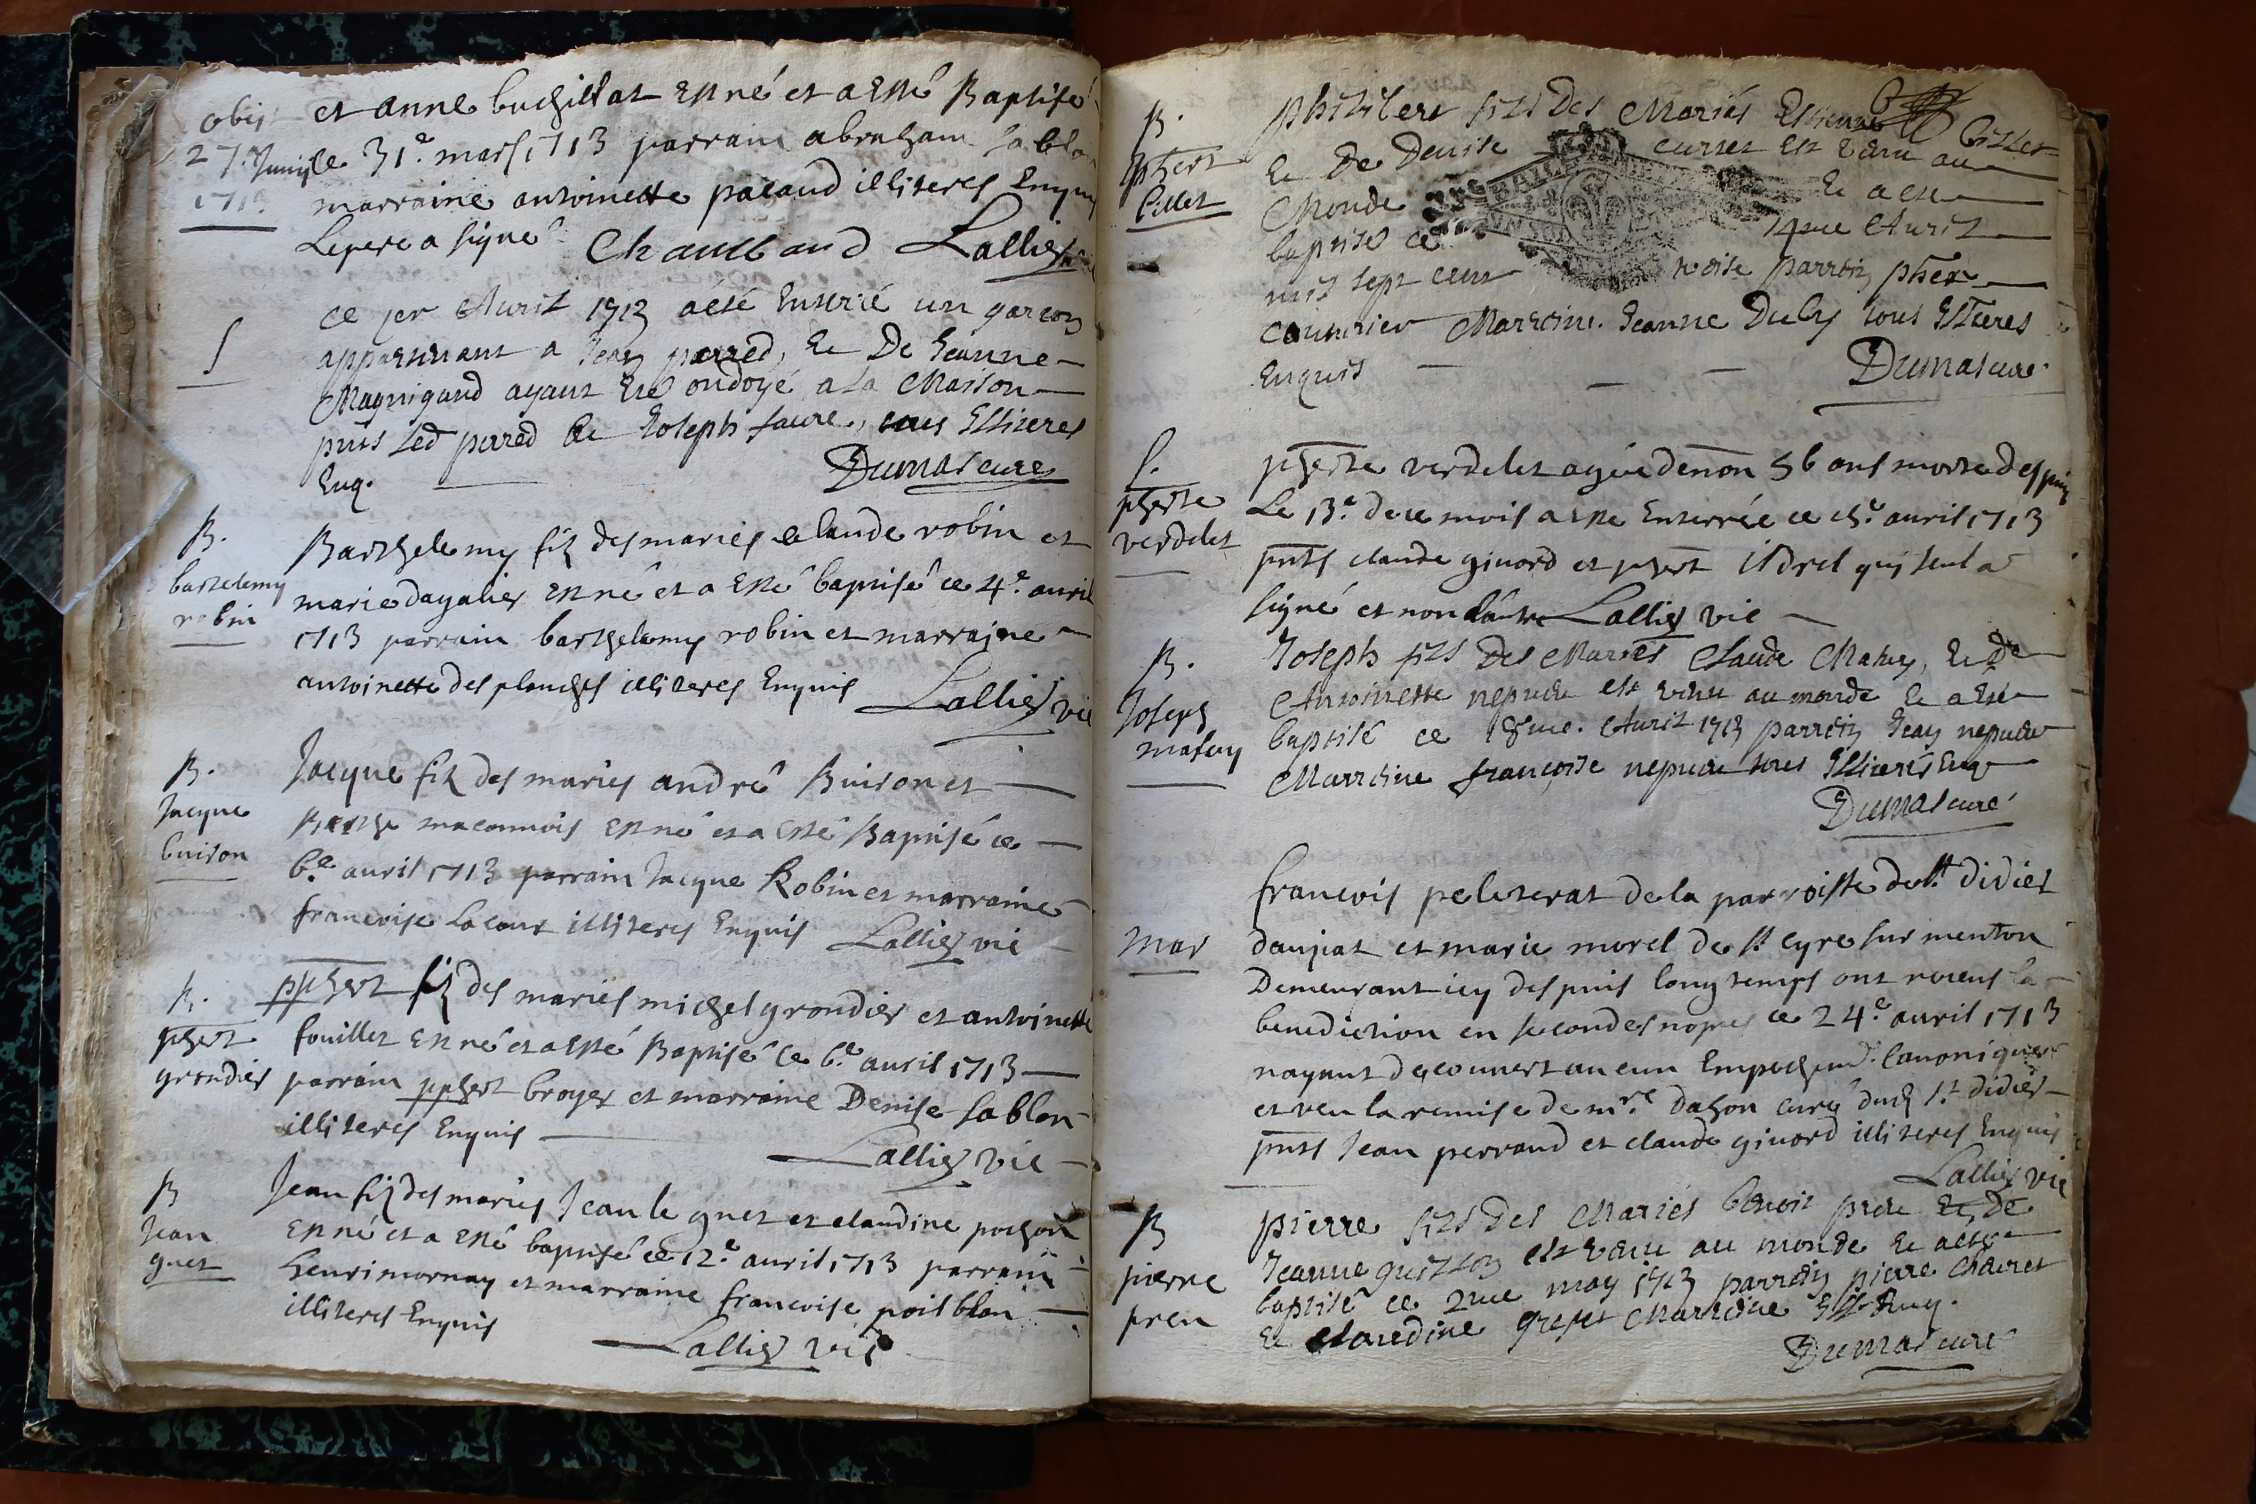 obijt
27e Junij
1713
et anne buchillat est né et a esté Baptisé
le 31e mars 1713 parrain abraham Sablon
marraine antoinette pacaud illiteres Enquis
Le pere a signé Chambaud Lallier
S
ce jer Auril 1713 a été Enterré un garcon
appartenant a Jean perred, Et De Jeanne
Magnigand ayant Eté ondoyé a la Maison
pnts Led perred Et Joseph faure, tous Illiteres
Enq. Dumas cure
B.
bartelemy
robin
Barthelemy fils des mariés claude robin et
marie dagalier est né et a esté baptisé ce 4e avril
1713 parrain barthelemy robin et marraine
antoinette des planches illiteres Enquis Lallier vic
B.
Jacque
buison
Jacque fils des mariés andré Buison et
maconnois est né et a esté Baptisé ce
6e avril 1713 parrain Jacque Robin et marraine
francoise Lacour illiteres Enquis Lallier vic
B.
phert
grondier
pphert fils des mariés michel grondier et antoinette
fouillet est né et a esté Baptisé ce 6e avril 1713
parrain pphert broyer et marraine Denise Sablon
illiteres Enquis
Lallier vic
B
Jean
guet
Jean fils des mariés Jean le guet et claudine pochon
est né et a esté baptisé ce 12e avril 1713 parrain
henri mornay et marraine francoise poisblan
illiteres Enquis
Lallier vic
B.
phert
billet
philibert fils Des Mariés Estienne billet
Et De Denise curtet est venu au
Monde Et a ete
baptisé ce 14me Auril
mil sept cent treise parrein phert
couturier Marreine Jeanne Duby tous Illiteres
Enquis
Dumas cure
S.
pherte
verdelet
pherte verdelet agée denon 56 ans morte despuis
Le 13e de ce mois a este Enterrée ce 15e avril 1713
pnts claude givord et phert tidrel qui seul a
signé et non lautre Lallier vic
B.
Joseph
matray
Joseph fils Des Mariés Claude Matray, Et De
Antoinette nepveu est venu au monde Et a été
baptisé ce 18me. Auril 1713 parrein Jean nepveu
Marreine françoise nepveu tous Illiteres Enq
Dumas curé
mar
francois peleterat de la parroisse de St didier
daujat et marie morel de St Cyre sur menton
Demeurant icy despuis long temps ont receus la
benediction en secondes nopces ce 24e avril 1713
nayant decouvert aucun Empechemt Canonique
et veu la remise de mre dahon curé dud St didier
pnts Jean perraud et claude givord illiteres Enquis
Lallier vic
B
pierre
preu
pierre fils Des Mariés benoit preu Et De
Jeanne guillon est venu au monde Et a ete
baptisé ce 2me may 1713 parrein pierre chanet
Et claudine grefet Marreine Ill Enq.
Dumas curé